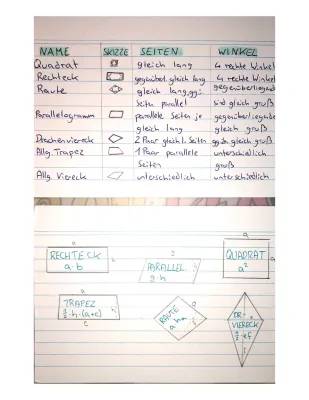 NAME SKIZZE SEITEN WINKEL
Quadrat gleich lang 4 rechte Winkel
Rechteck gegenüberl. gleich lang 4 rechte Winkel
Raute gleich lang, ggü. gegenüberliegende
Seiten parallel sind gleich groß
Parallelogramm parallele Seiten je gegenüberliegende
gleich lang gleich groß
Drachenviereck 2 Paar gleichl. Seiten ggü. gleich groß
Allg. Trapez 1 Paar parallele unterschiedlich
Seiten groß
Allg. Viereck unterschiedlich unterschiedlich
RECHTECK
a·b
PARALLEL.
g·h
a
QUADRAT
a²
a
a
TRAPEZ
½·h·(a+c)
c
RAUTE
DR-
VIERECK
½·ef